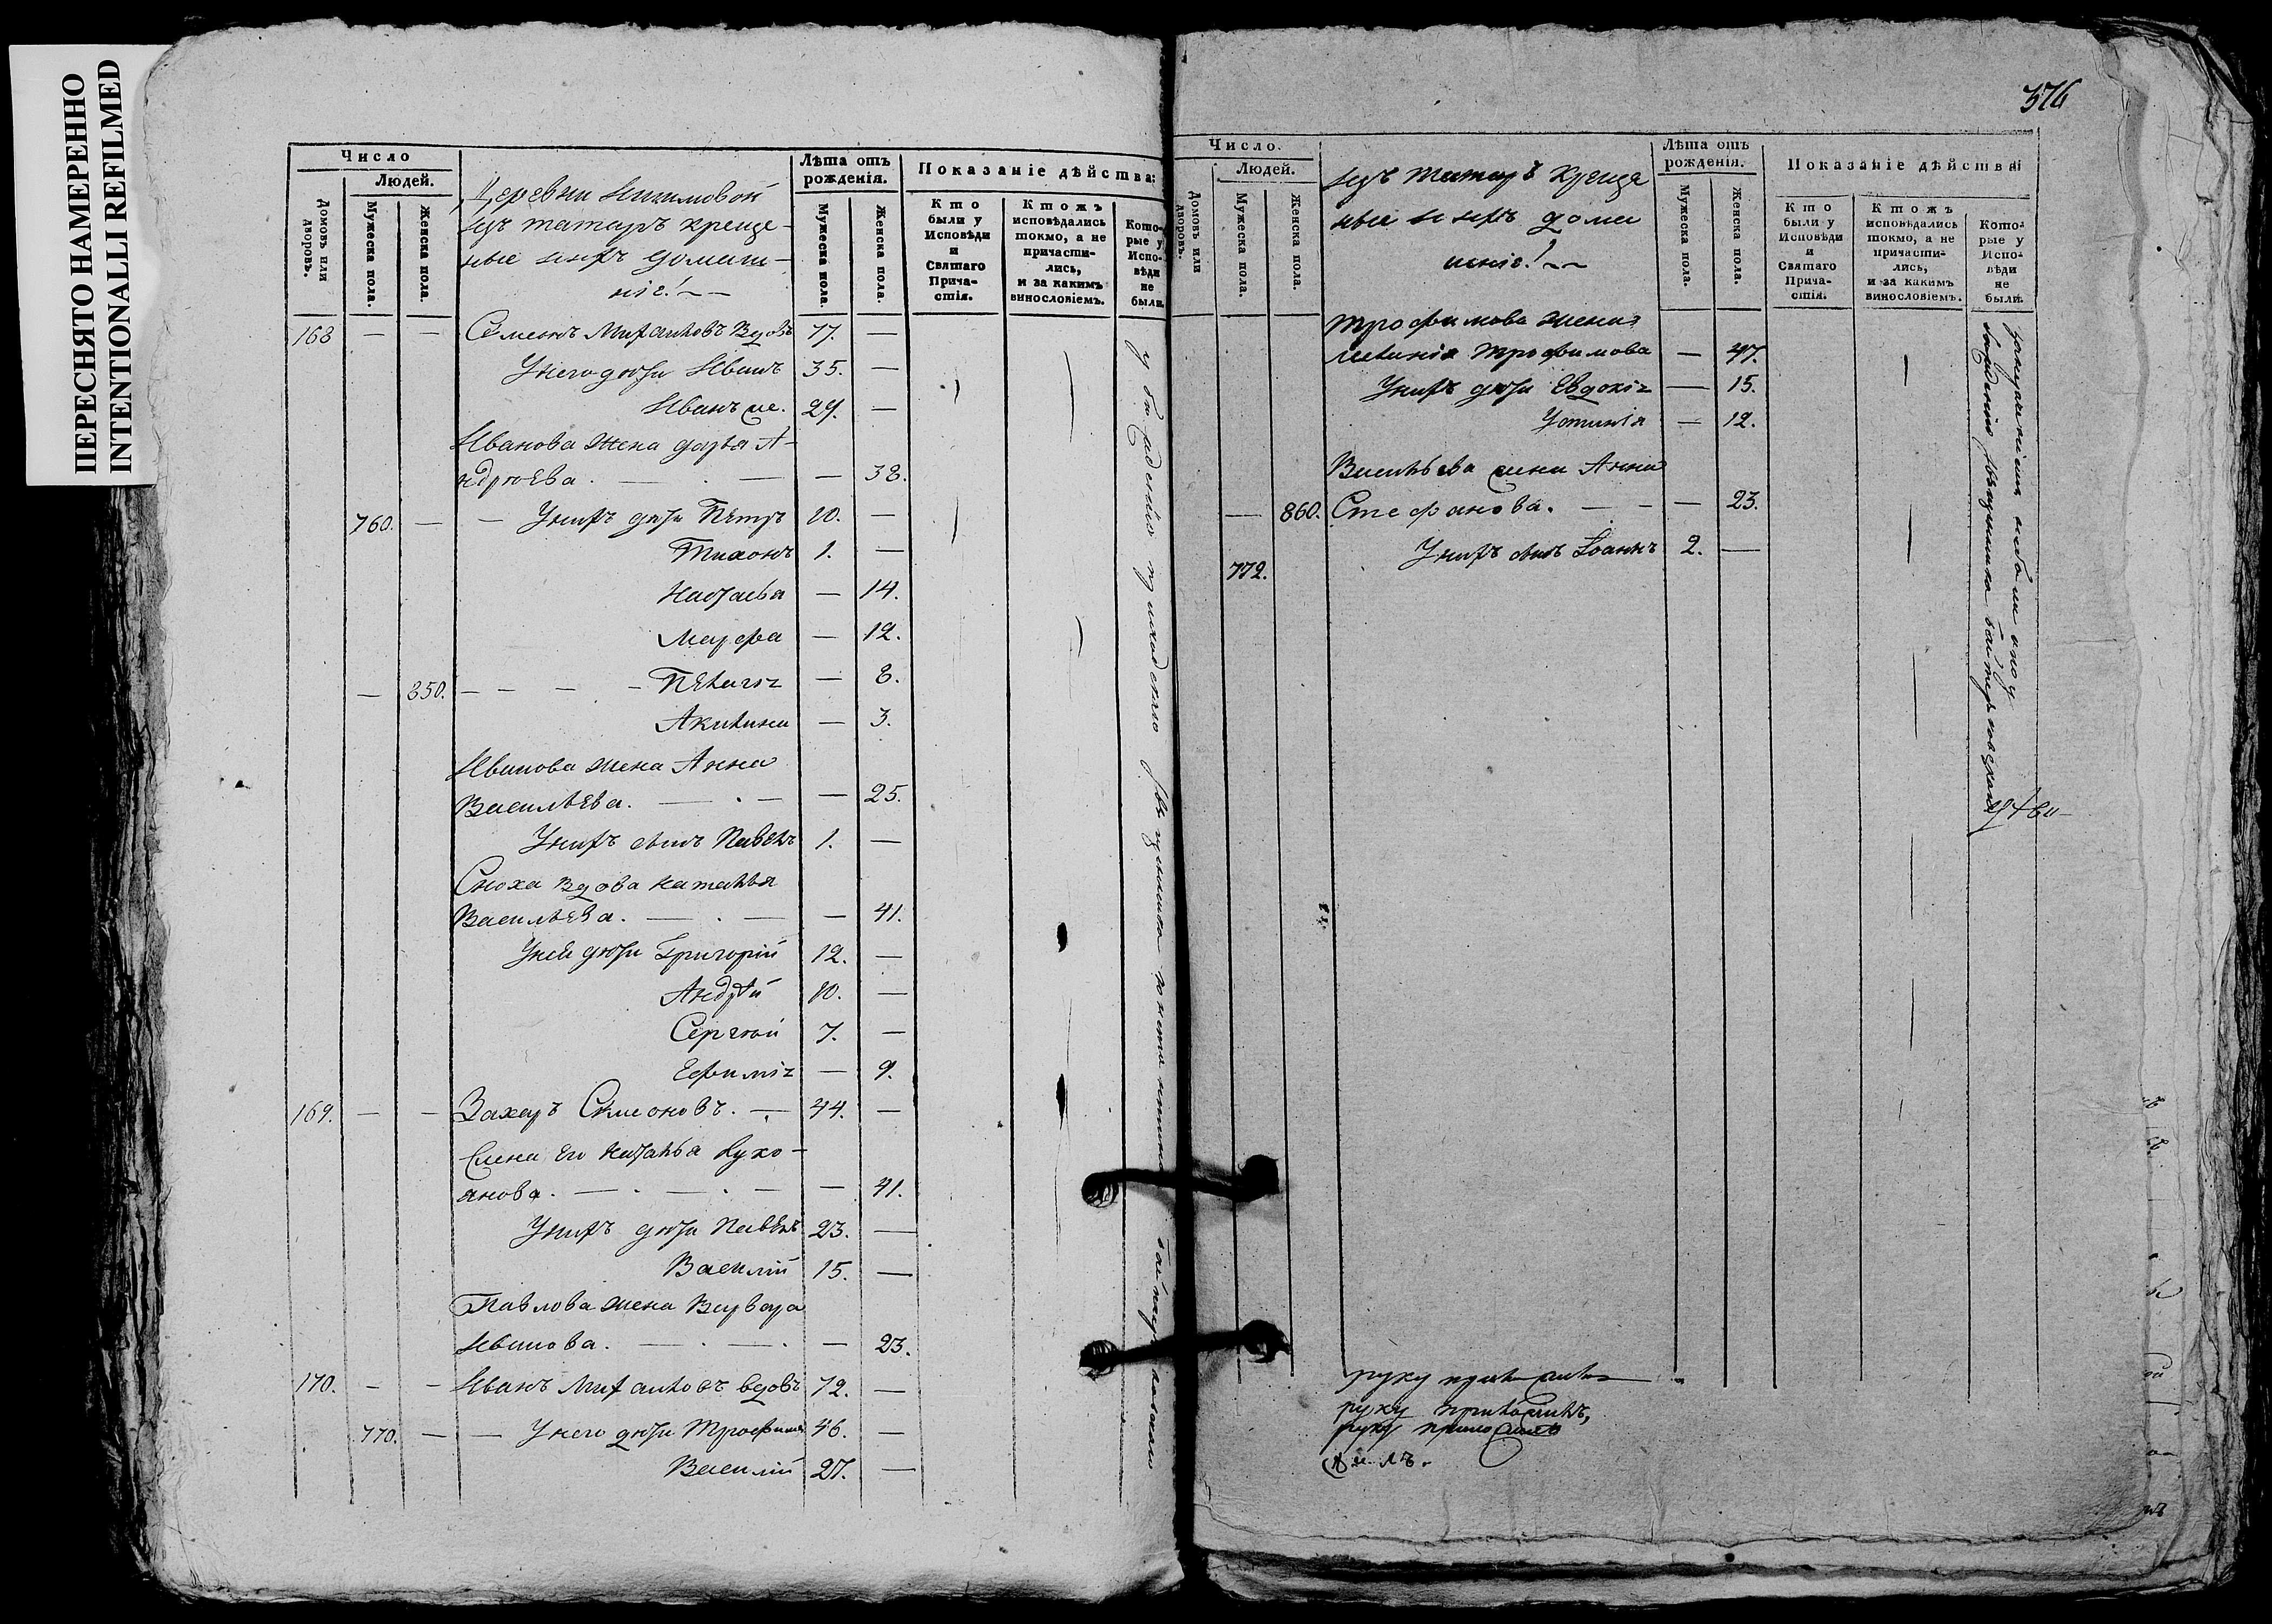 ПЕРЕСНЯТО НАМЕРЕННО
INTENTIONALLI REFILMED
Число
Людей.
Домовъ или дворовъ.
Мужеска пола.
Женска пола.
Деревни
изъ татаръ креще-
ные ихъ домаш-
ніе!
Лѣта отъ рожденія.
Мужеска пола.
Женска пола.
Показаніе дѣйства:
Кто были у Исповѣди и Святаго Прича-стія.
Ктожъ исповѣдались токмо, а не причасти-лись, и за какимъ винословіемъ.
Кото-рые у Испо-вѣди не были.
168 — — Семеонъ Михайловъ Вдовъ 77. —
У него дѣти Иванъ 35. —
Иванъ же. 29. —
Иванова жена Дарья А-
ндрѣева. — — 38.
760. — — У нихъ дѣти Петръ 10. —
Тихонъ 1. —
Наталья — 14.
Марфа — 12.
— 850. — Пелагія — 8.
Акилина — 3.
Иванова жена Анна
Васильева. — — 25.
У нихъ сынъ Павелъ 1. —
Сноха вдова Наталья
Васильева. — — 41.
У ней дѣти Григорій 12. —
Андрей 10. —
Сергѣй 7. —
Ефимія — 9.
169. — — Захаръ Семеоновъ. — 44. —
Жена его Наталья Луко-
янова. — — 41.
У нихъ дѣти Павелъ 23. —
Василій 15. —
Павлова жена Варвара
Иванова. — — 23.
170. — — Иванъ Михайловъ вдовъ 72. —
770. — — У него дѣти Трофимъ 46. —
Василій 27. —
376
Число.
Людей.
Домовъ или дворовъ.
Мужеска пола.
Женска пола.
изъ татаръ креще
ные и ихъ дома
шніе!
Лѣта отъ рожденія.
Мужеска пола.
Женска пола.
Показаніе дѣйства
Кто были у Исповѣди и Святаго Прича-стія.
Ктожъ исповѣдались токмо, а не причасти-лись, и за какимъ винословіемъ.
Кото-рые у Испо-вѣди не были.
Трофимова жена
Трофимова — 47.
У нихъ дѣти Евдокія — 15.
Устинія — 12.
Васильева жена Анна
— 860. Стефанова. — — 23.
У нихъ сынъ Іоаннъ 2. —
772.
руку приложилъ
руку приложилъ,
руку приложилъ